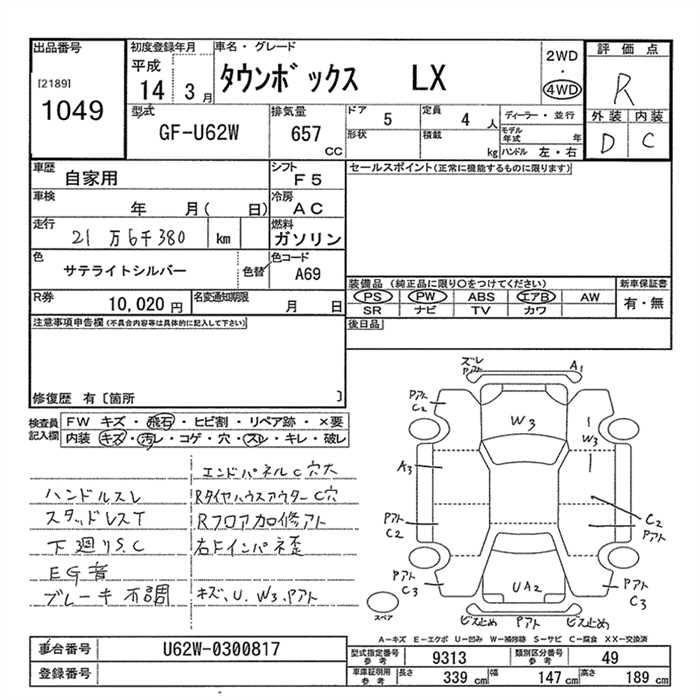 出品番号
[2189]
1049
初度登録年月
平成
14 3月
車名・グレード
タウンボックス LX
2WD
・
4WD
評価点
R
外装 内装
D C
型式
GF-U62W
排気量
657 CC
ドア 5
形状
定員 4 人
積載 kg
ディーラー・並行
モデル年式 年
ハンドル 左・右
車歴
自家用
シフト
F5
車検
年 月( 日)
冷房
AC
走行
21万6千380 km
燃料
ガソリン
色
サテライトシルバー
色替
色コード
A69
R券
10,020 円
名変通知期限
月 日
セールスポイント(正常に機能するものに限ります)
装備品(純正品に限り○をつけてください)
PS PW ABS エアB AW
SR ナビ TV カワ
新車保証書
有・無
後日品
注意事項申告欄(不具合内容等は具体的に記入して下さい)
修復歴 有〔箇所 〕
検査員記入欄
FW キズ・飛石・ヒビ割・リペア跡・×要
内装 キズ・汚レ・コゲ・穴・スレ・キレ・破レ
エンドパネルC穴大
ハンドルスレ
Rタイヤハウスアウター C穴
スタッドレスT
Rフロア加修アト
下廻りS.C
右Fインパネ歪
EG音
ブレーキ不調
キズ、U、W3、Pアト
ズレ
Pアト
A1
Pアト
C2
W3
W3
A3
Pアト
C2
C2
Pアト
Pアト
C3
UA2
Pアト
C3
スペア
ビス止め Pアト ビス止め
A-キズ E-エクボ U-凹み W-補修跡 S-サビ C-腐食 XX-交換済
車台番号
U62W-0300817
登録番号
型式指定番号 参考
9313
類別区分番号 参考
49
車庫証明用 参考
長さ 339 cm
幅 147 cm
高さ 189 cm